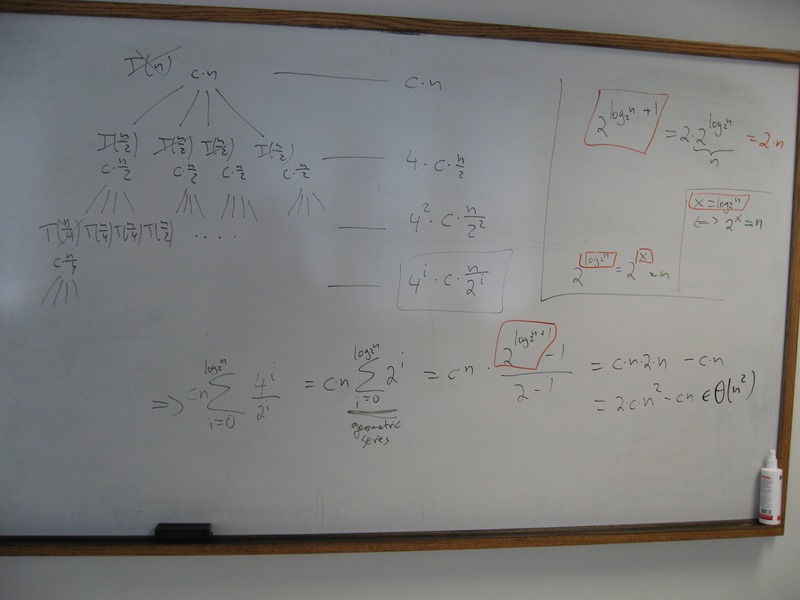 T(n)
c·n ——— c·n
T(n/2) T(n/2) T(n/2) T(n/2)
c·n/2 c·n/2 c·n/2 c·n/2 ——— 4·c·n/2
T(n/4) T(n/4) T(n/4) T(n/2) .... ——— 4²·c·n/2²
c·n/4
——— 4^i·c·n/2^i
2^(log₂n +1) = 2·2^(log₂n) = 2·n
n
x = log₂n
(=) 2^x = n
2^(log₂n) = 2^x = n
=> cn ∑_{i=0}^{log₂n} 4^i/2^i = c·n ∑_{i=0}^{log₂n} 2^i = c·n · (2^(log₂n +1) - 1)/(2-1) = c·n·2·n - c·n
geometric
series
= 2·c·n² - cn ∈ θ(n²)